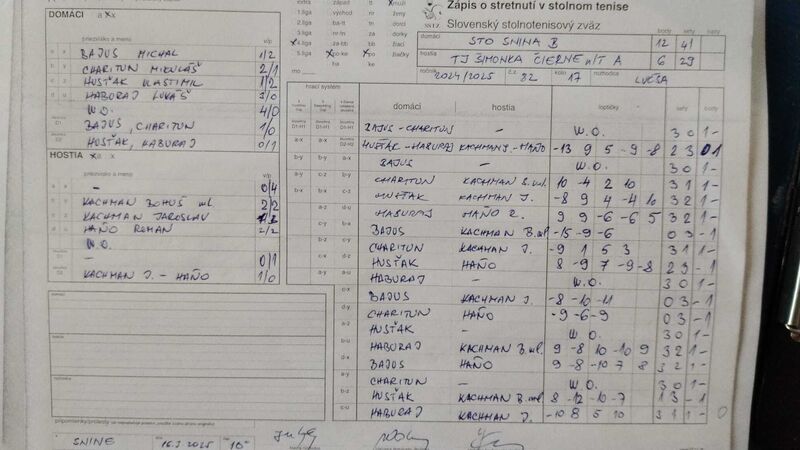 DOMÁCI a x x
priezvisko a meno v/p
BAJUS MICHAL 1/2
CHARITUN MIKULÁŠ 2/1
HUSŤAK VLASTIMIL 1/2
HABURAJ LUKÁŠ 3/0
W.O. 4/0
D1 BAJUS, CHARITUN 1/0
D2 HUSŤAK, HABURAJ 0/1
HOSTIA
priezviská a mená v/p
– 0/4
KACHMAN BOHUŠ ml 2/2
KACHMAN JAROSLAV
HAŇO ROMAN 2/2
W.O.
– 0/1
KACHMAN J. - HAŇO 1/0
domáci
hostia
rozhodca
SNINE 16.3.2025
Zápis o stretnutí v stolnom tenise
Slovenský stolnotenisový zväz
SSTZ
domáci body sety
STO SNINA B 12 41
hostia
TJ ŠIMONKA ČIERNE n/T A 6 29
ročník 2024/2025 č.z. 82 kolo 17 rozhodca LUČŠA
hrací systém domáci hostia loptičky sety body
BAJUS - CHARITUN – W.O. 3 0 1 -
HUSŤAK - HABURAJ KACHMAN J. - HAŇO -13 9 5 -9 -8 2 3 0 1
BAJUS – W.O. 3 0 1 -
CHARITUN KACHMAN B. ml. 10 -4 2 10 3 1 1 -
HUSŤAK KACHMAN J. -8 9 4 -4 10 3 2 1 -
HABURAJ HAŇO R. 9 9 -6 -6 5 3 2 1 -
BAJUS KACHMAN B. ml -15 -9 -6 0 3 - 1
CHARITUN KACHMAN J. -9 1 5 3 3 1 1 -
HUSŤAK HAŇO 8 -9 7 -9 -8 2 3 - 1
HABURAJ – W.O. 3 0 1 -
BAJUS KACHMAN J. -8 -10 -11 0 3 - 1
CHARITUN HAŇO -9 -6 -9 0 3 - 1
HUSŤAK – W.O. 3 0 1 -
HABURAJ KACHMAN B. ml. 9 -8 10 -10 9 3 2 1 -
BAJUS HAŇO 9 -8 -10 7 8 3 2 1 -
CHARITUN – W.O. 3 0 1 -
HUSŤAK KACHMAN B. ml 8 -12 -10 -7 1 3 - 1
HABURAJ KACHMAN J. -10 8 5 10 3 1 1 -